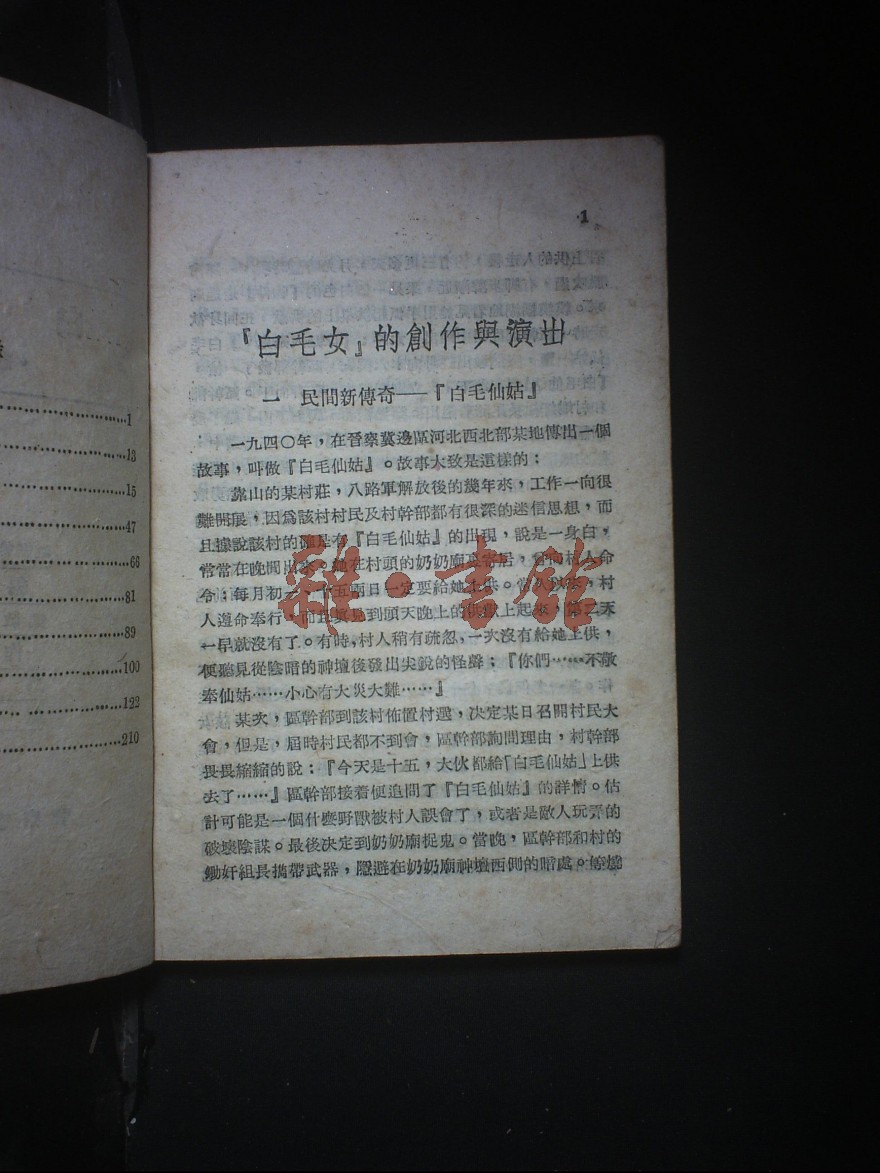 1
13
15
47
66
81
89
100
122
210
1
『白毛女』的創作與演出
一 民間新傳奇——『白毛仙姑』
一九四〇年，在晉察冀邊區河北西北部某地傳出一個
故事，叫做『白毛仙姑』。故事大致是這樣的：
靠山的某村莊，八路軍解放後的幾年來，工作一向很
難開展，因爲該村村民及村幹部都有很深的迷信思想，而
且據說該村的確是有『白毛仙姑』的出現，說是一身白，
常常在晚間出來。她在村頭的奶奶廟裏寄居，曾向村人命
令：每月初一、十五兩日一定要給她上供。常久以來，村
人遵命奉行，而且真見到頭天晚上的供獻上起來，第二天
一早就沒有了。有時，村人稍有疏忽，一次沒有給她上供，
便聽見從陰暗的神壇後發出尖銳的怪聲；『你們……不敬
奉仙姑……小心有大災大難……』
某次，區幹部到該村佈置村選，決定某日召開村民大
會，但是，屆時村民都不到會，區幹部詢問理由，村幹部
畏畏縮縮的說：『今天是十五，大伙都給「白毛仙姑」上供
去了……』區幹部接着便追問了『白毛仙姑』的詳情。估
計可能是一個什麼野獸被村人誤會了，或者是敵人玩弄的
破壞陰謀。最後決定到奶奶廟捉鬼。當晚，區幹部和村的
鋤奸組長攜帶武器，隱避在奶奶廟神壇西側的暗處。等燒
雜·書館